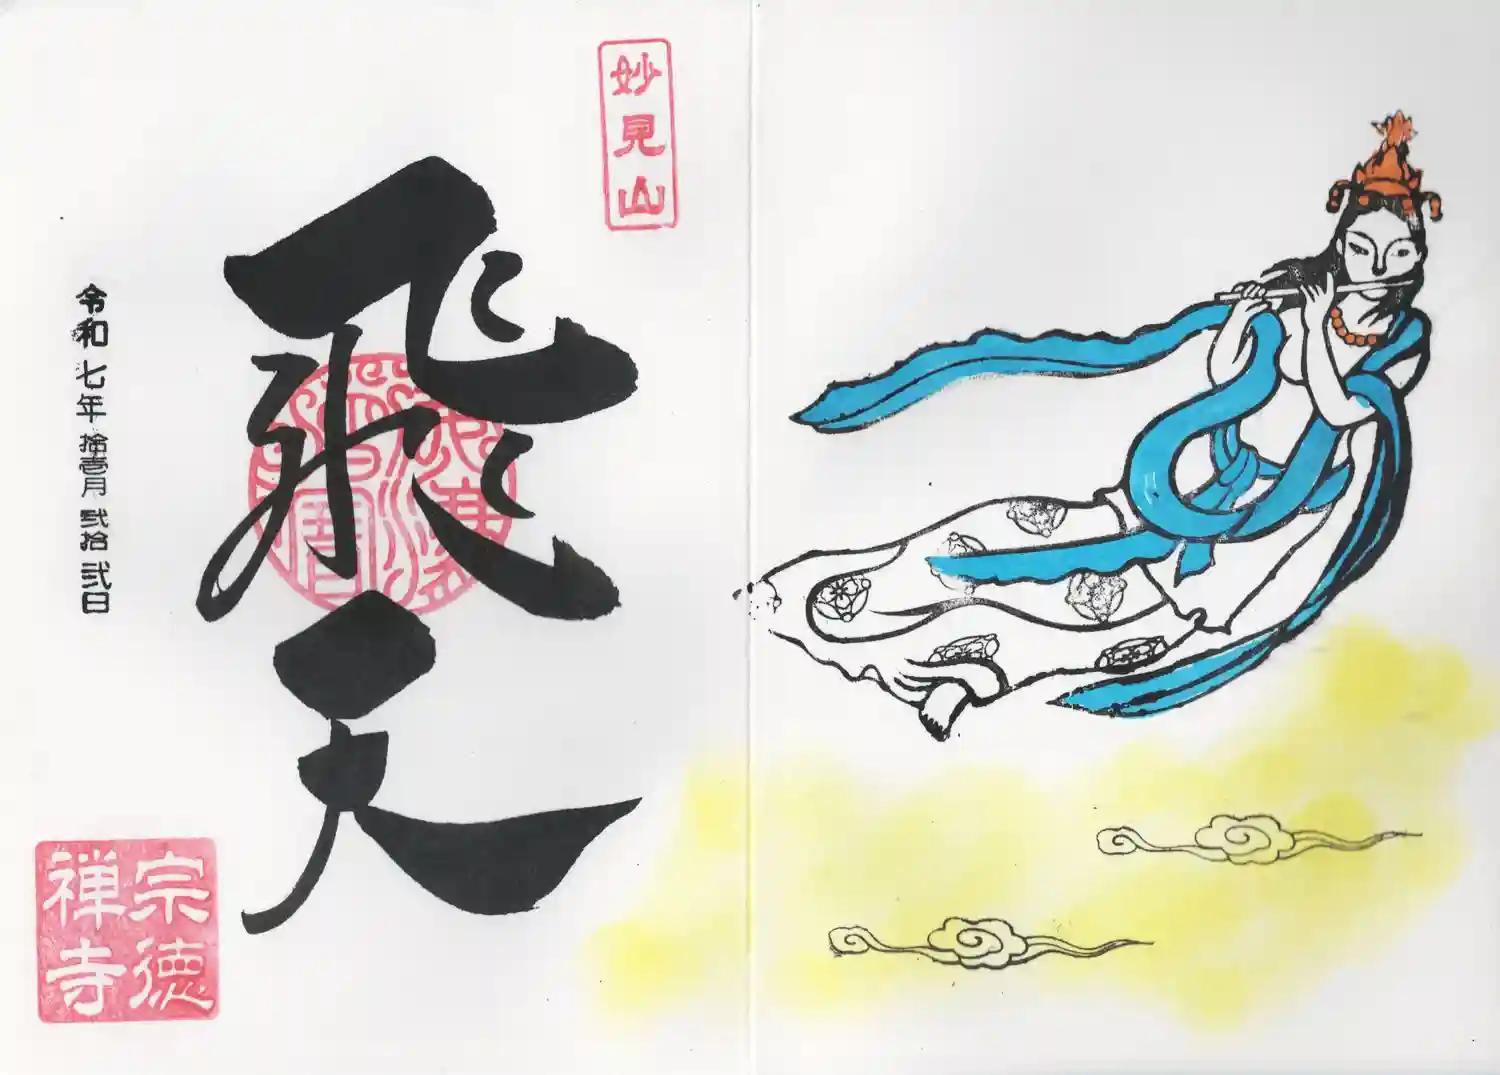 妙見山
飛天
令和七年拾壱月弐拾弐日
宗徳
禅寺